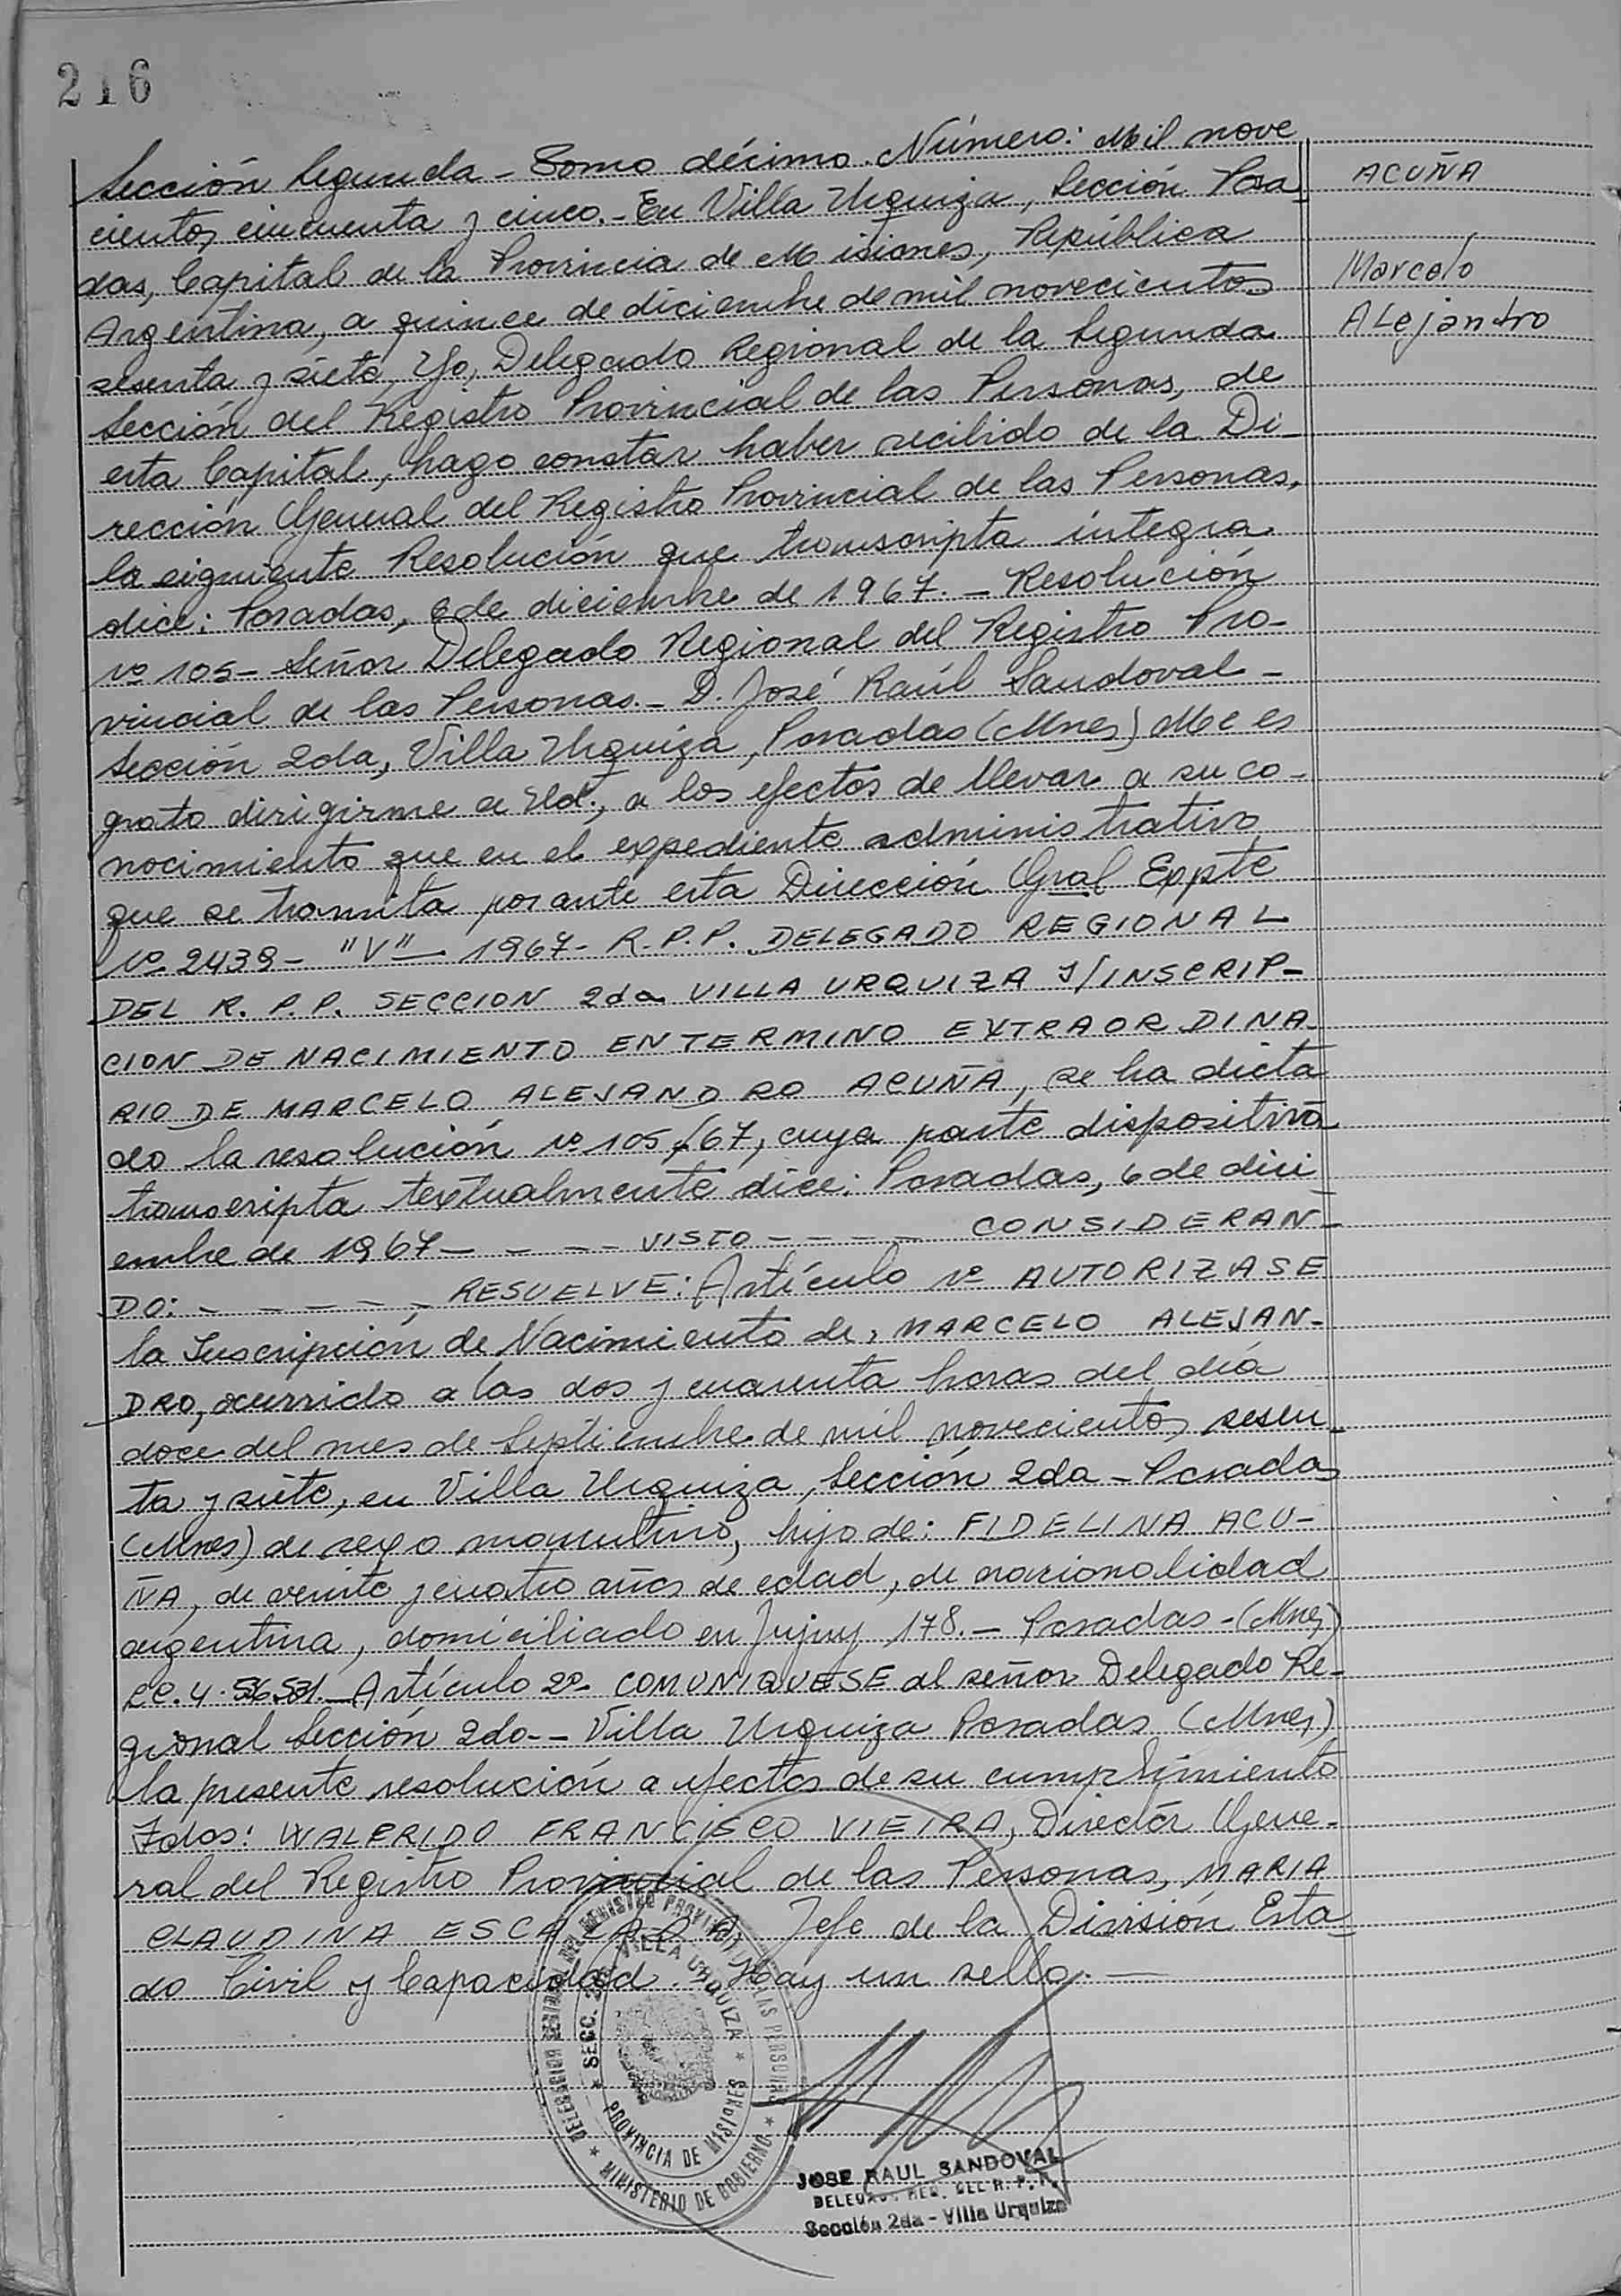 216
Sección Segunda - Tomo décimo. Número: Mil nove
cientos cincuenta y cinco. - En Villa Urquiza, Sección Posa
das, Capital de la Provincia de Misiones, República
Argentina, a quince de diciembre de mil novecientos
sesenta y siete, Yo, Delegado Regional de la Segunda
Sección del Registro Provincial de las Personas, de
esta Capital, hago constar haber recibido de la Di-
rección General del Registro Provincial de las Personas,
la siguiente Resolución que transcripta íntegra
dice: Posadas, 6 de diciembre de 1967. - Resolución
Nº 105 - Señor Delegado Regional del Registro Pro-
vincial de las Personas. - D. José Raúl Sandoval -
Sección 2da, Villa Urquiza, Posadas (Mnes) Me es
grato dirigirme a Ud., a los efectos de llevar a su co-
nocimiento que en el expediente administrativo
que se tramita por ante esta Dirección Gral Eppte
Nº 2439 - "V" - 1967 - R.P.P. DELEGADO REGIONAL
DEL R. P. P. SECCION 2da VILLA URQUIZA S/INSCRIP-
CION DE NACIMIENTO EN TERMINO EXTRAORDINA-
RIO DE MARCELO ALEJANDRO ACUÑA, se ha dicta
do la resolución nº 105/67, cuya parte dispositiva
transcripta textualmente dice: Posadas, 6 de dici
embre de 1967 - - - - VISTO - - - - CONSIDERAN-
DO: - - - - -, RESUELVE: Artículo 1º AUTORIZASE
la Inscripción de Nacimiento de, MARCELO ALEJAN-
DRO, ocurrido a las dos y cuarenta horas del día
doce del mes de Septiembre de mil novecientos sesen-
ta y siete, en Villa Urquiza, Sección 2da - Posadas
(Mnes) de sexo masculino, hijo de: FIDELINA ACU-
ÑA, de veinte y cuatro años de edad, de nacionalidad
argentina, domiciliado en Jujuy 178. - Posadas - (Mnes)
Artículo 2º - COMUNIQUESE al señor Delegado Re-
gional Sección 2da - - Villa Urquiza Posadas (Mnes)
la presente resolución a efectos de su cumplimiento
Fdos: WALFRIDO FRANCISCO VIEIRA, Director Gene-
ral del Registro Provincial de las Personas, MARIA
CLAUDINA Jefe de la División Esta
do Civil y Capacidad. - Hay un sello. -
ACUÑA
Marcelo
Alejandro
DELEGACION REGISTRO PROVINCIAL DE LAS PERSONAS
SECC. 2da VILLA URQUIZA
PROVINCIA DE MISIONES
MINISTERIO DE GOBIERNO
JOSE RAUL SANDOVAL
DELEGADO REG. DEL R. P. P.
Sección 2da - Villa Urquiza